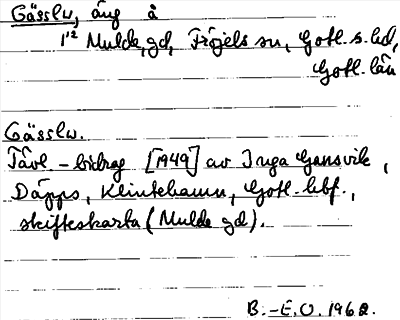 Gässlu, äng å
1¹² Mulde, gd, Fröjels sn, Gotl. s. hd,
Gotl. län
Gässlu.
Tävl-bidrag [1949] av Inga Gansvik,
Däpps, Klintehamn, Gotl. hbf.,
skifteskarta (Mulde gd).
B.-E.O. 1962.